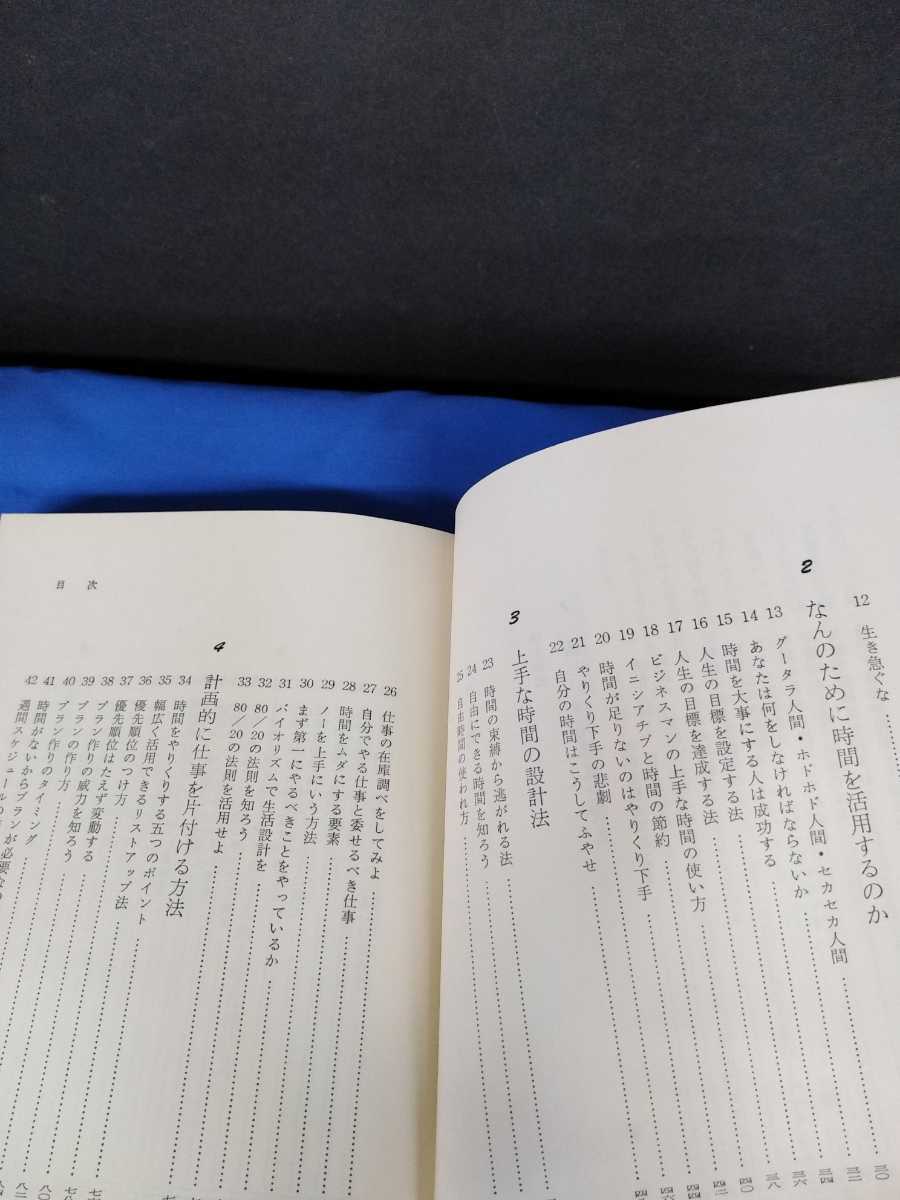 12 生き急ぐな
2 なんのために時間を活用するのか
13 グータラ人間・ホドホド人間・セカセカ人間
14 あなたは何をしなければならないか
15 時間を大事にする人は成功する
16 人生の目標を設定する法
17 人生の目標を達成する法
18 ビジネスマンの上手な時間の使い方
19 イニシアチブと時間の節約
20 時間が足りないのはやりくり下手
21 やりくり下手の悲劇
22 自分の時間はこうしてふやせ
3 上手な時間の設計法
23 時間の束縛から逃がれる法
24 自由にできる時間を知ろう
25 自由時間の使われ方
目次
26 仕事の在庫調べをしてみよ
27 自分でやる仕事と委せるべき仕事
28 時間をムダにする要素
29 ノーを上手にいう方法
30 まず第一にやるべきことをやっているか
31 バイオリズムで生活設計を
32 80/20の法則を知ろう
33 80/20の法則を活用せよ
4 計画的に仕事を片付ける方法
34 時間をやりくりする五つのポイント
35 幅広く活用できるリストアップ法
36 優先順位のつけ方
37 優先順位はたえず変動する
38 プラン作りの威力を知ろう
39 プランの作り方
40 プラン作りのタイミング
41 時間がないからプランが必要な
42 週間スケジュールの